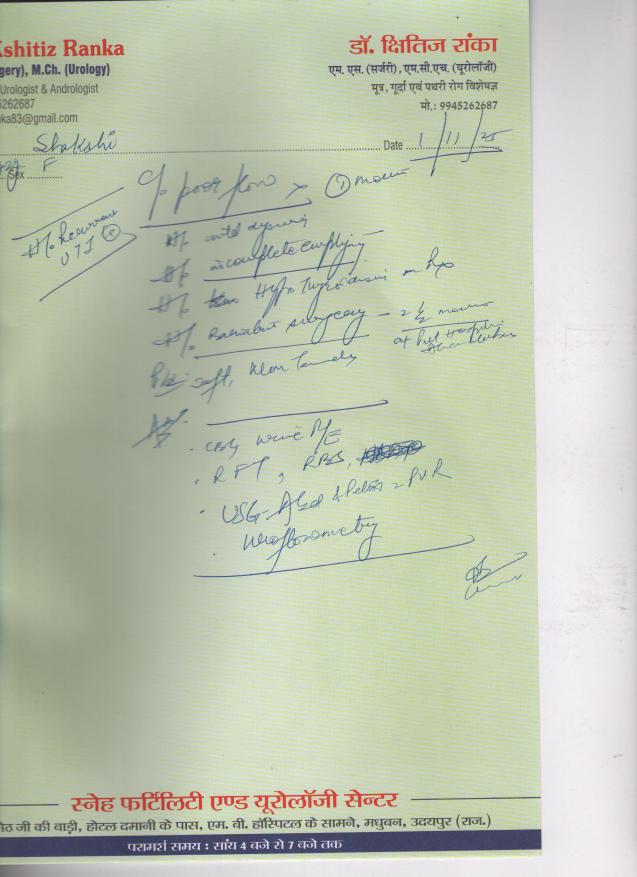 shitiz Ranka
gery), M.Ch. (Urology)
Urologist & Andrologist
5262687
nka83@gmail.com
डॉ. क्षितिज रांका
एम. एस. (सर्जरी), एम.सी.एच. (यूरोलॉजी)
मूत्र, गुर्दा एवं पथरी रोग विशेषज्ञ
मो.: 9945262687
Shakshi
Date 1/11/25
Sex F
c/o poor flow x 1
H/o Recurrent
UTI +
H/o mild dysuria
H/o incomplete emptying
H/o Hypothyroidism on
H/o Bariatric surgery - 2 1/2
at
P/A: soft, Non tender
CBC, Urine R/E
RFT, RBS,
USG-Abd & Pelvis PVR
Uroflowmetry
स्नेह फर्टिलिटी एण्ड यूरोलॉजी सेन्टर
ठ जी की बाड़ी, होटल दमानी के पास, एम. बी. हॉस्पिटल के सामने, मधुबन, उदयपुर (राज.)
परामर्श समय : सांय 4 बजे से 7 बजे तक